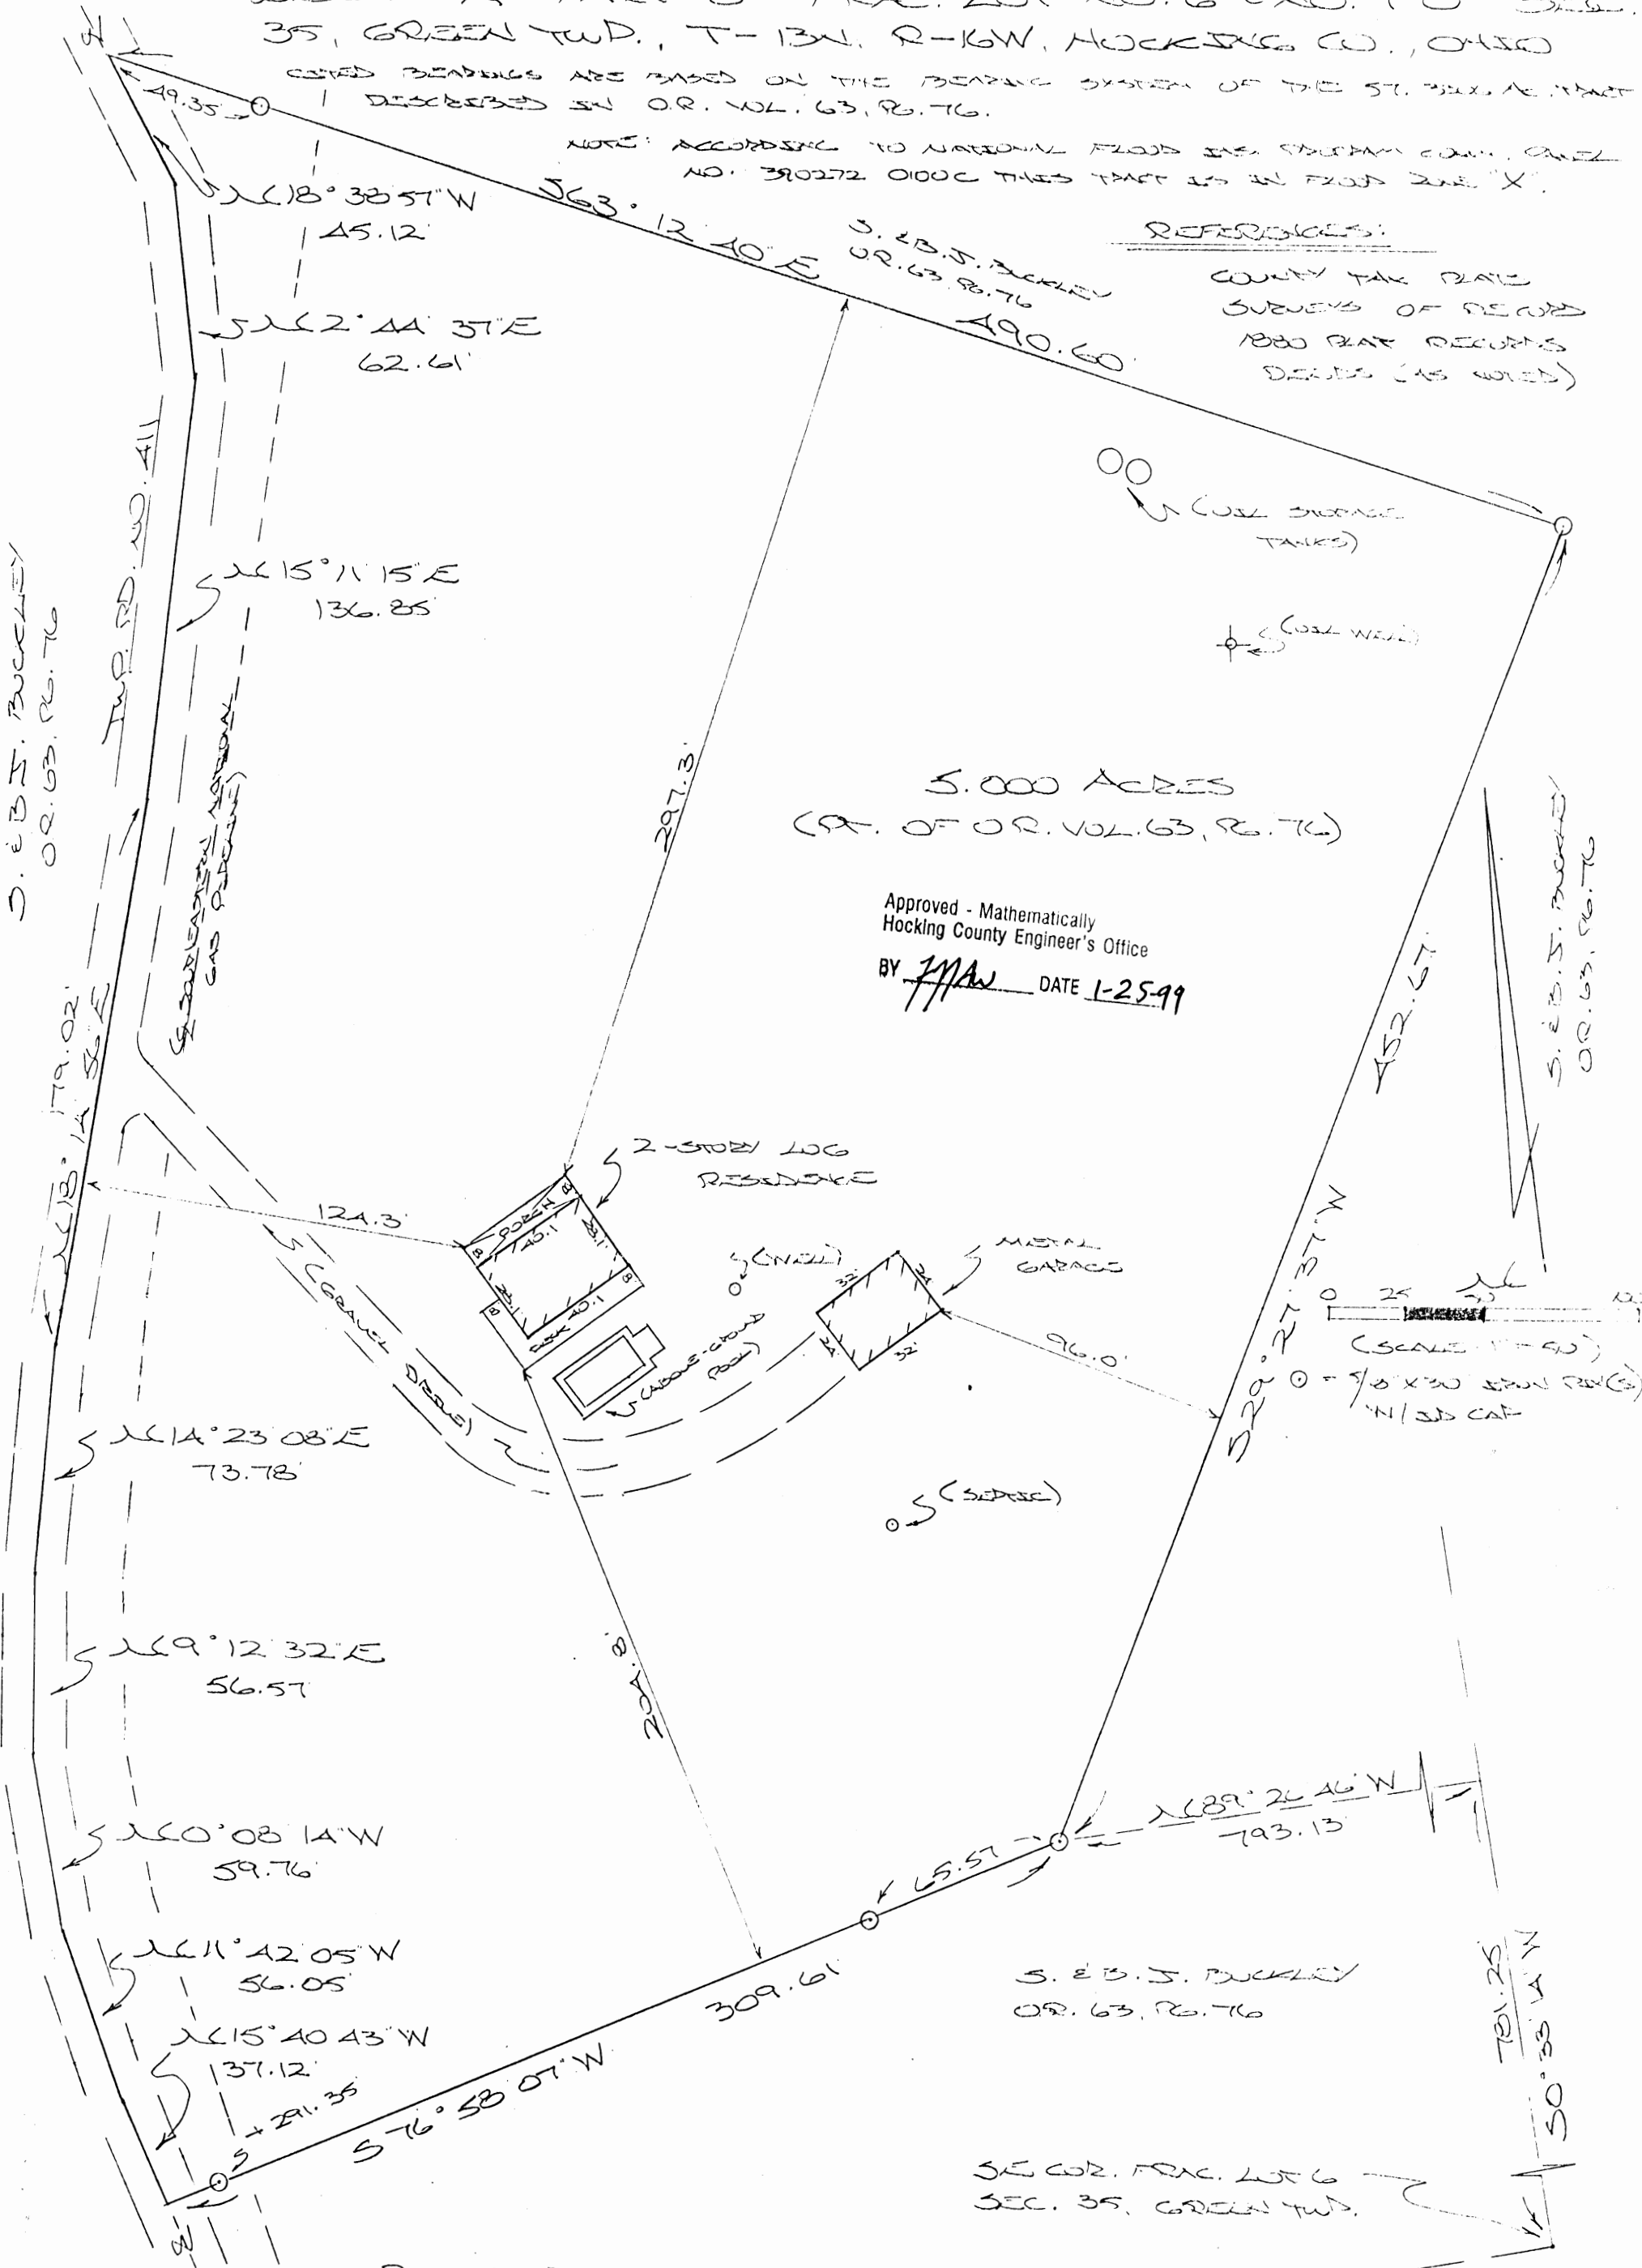 35, GREEN TWP., T-13N, R-16W, HOCKING CO., OHIO
CITED BEARINGS ARE BASED ON THE BEARING SYSTEM OF THE 57. AC. TRACT
DESCRIBED IN O.R. VOL. 63, PG. 76.
NOTE: ACCORDING TO NATIONAL FLOOD INS. PROGRAM COMM. PANEL
NO. 390272 0100C THIS TRACT IS IN FLOOD ZONE "X".
REFERENCES:
COUNTY TAX PLATS
SURVEYS OF RECORD
1880 PLAT RECORDS
DEEDS (AS NOTED)
49.35
N18°38'57"W
45.12'
S63°12'40"E
490.60'
S. & B.J. BUCKLEY
O.R. 63, PG. 76
N2°44'37"E
62.61'
TWP. RD. NO. 411
(OIL STORAGE
TANKS)
(OIL WELL)
N15°11'15"E
136.85'
S. & B.J. BUCKLEY
O.R. 63, PG. 76
297.3'
5.000 ACRES
(PT. OF O.R. VOL. 63, PG. 76)
Approved - Mathematically
Hocking County Engineer's Office
BY DATE 1-25-99
GAS PIPELINE)
452.67'
S29°27'37"W
S. & B.J. BUCKLEY
O.R. 63, PG. 76
179.02'
N18°14'56"E
124.3'
2-STORY LOG
RESIDENCE
PORCH
40.1
28.1
8
8
28.1
40.1
8
8
DECK
(WELL)
METAL
GARAGE
32'
24'
24'
32'
96.0'
(ABOVE-GROUND
POOL)
(GRAVEL DRIVE)
N
0 25 50
(SCALE 1"=50')
⊙ = 5/8"X30" IRON PIN(S)
W/ID CAP
N14°23'08"E
73.78'
(SEPTIC)
N9°12'32"E
56.57'
204.8'
N0°08'14"W
59.76'
N89°26'46"W
793.13'
65.57
N11°42'05"W
56.05'
309.61'
S. & B.J. BUCKLEY
O.R. 63, PG. 76
N15°40'43"W
137.12'
+291.35
S76°58'07"W
781.25'
S0°33'14"W
SE COR. FRAC. LOT 6
SEC. 35, GREEN TWP.